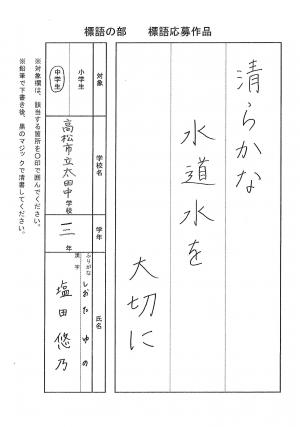 標語の部　標語応募作品
清らかな
水道水を
大切に
対象
小学生
中学生
学校名
高松市立太田中学校
学年
三年
氏名
ふりがな
しおた　ゆの
漢字
塩田　悠乃
※対象欄は、該当する箇所を〇印で囲んでください。
※鉛筆で下書き後、黒のマジックで清書してください。